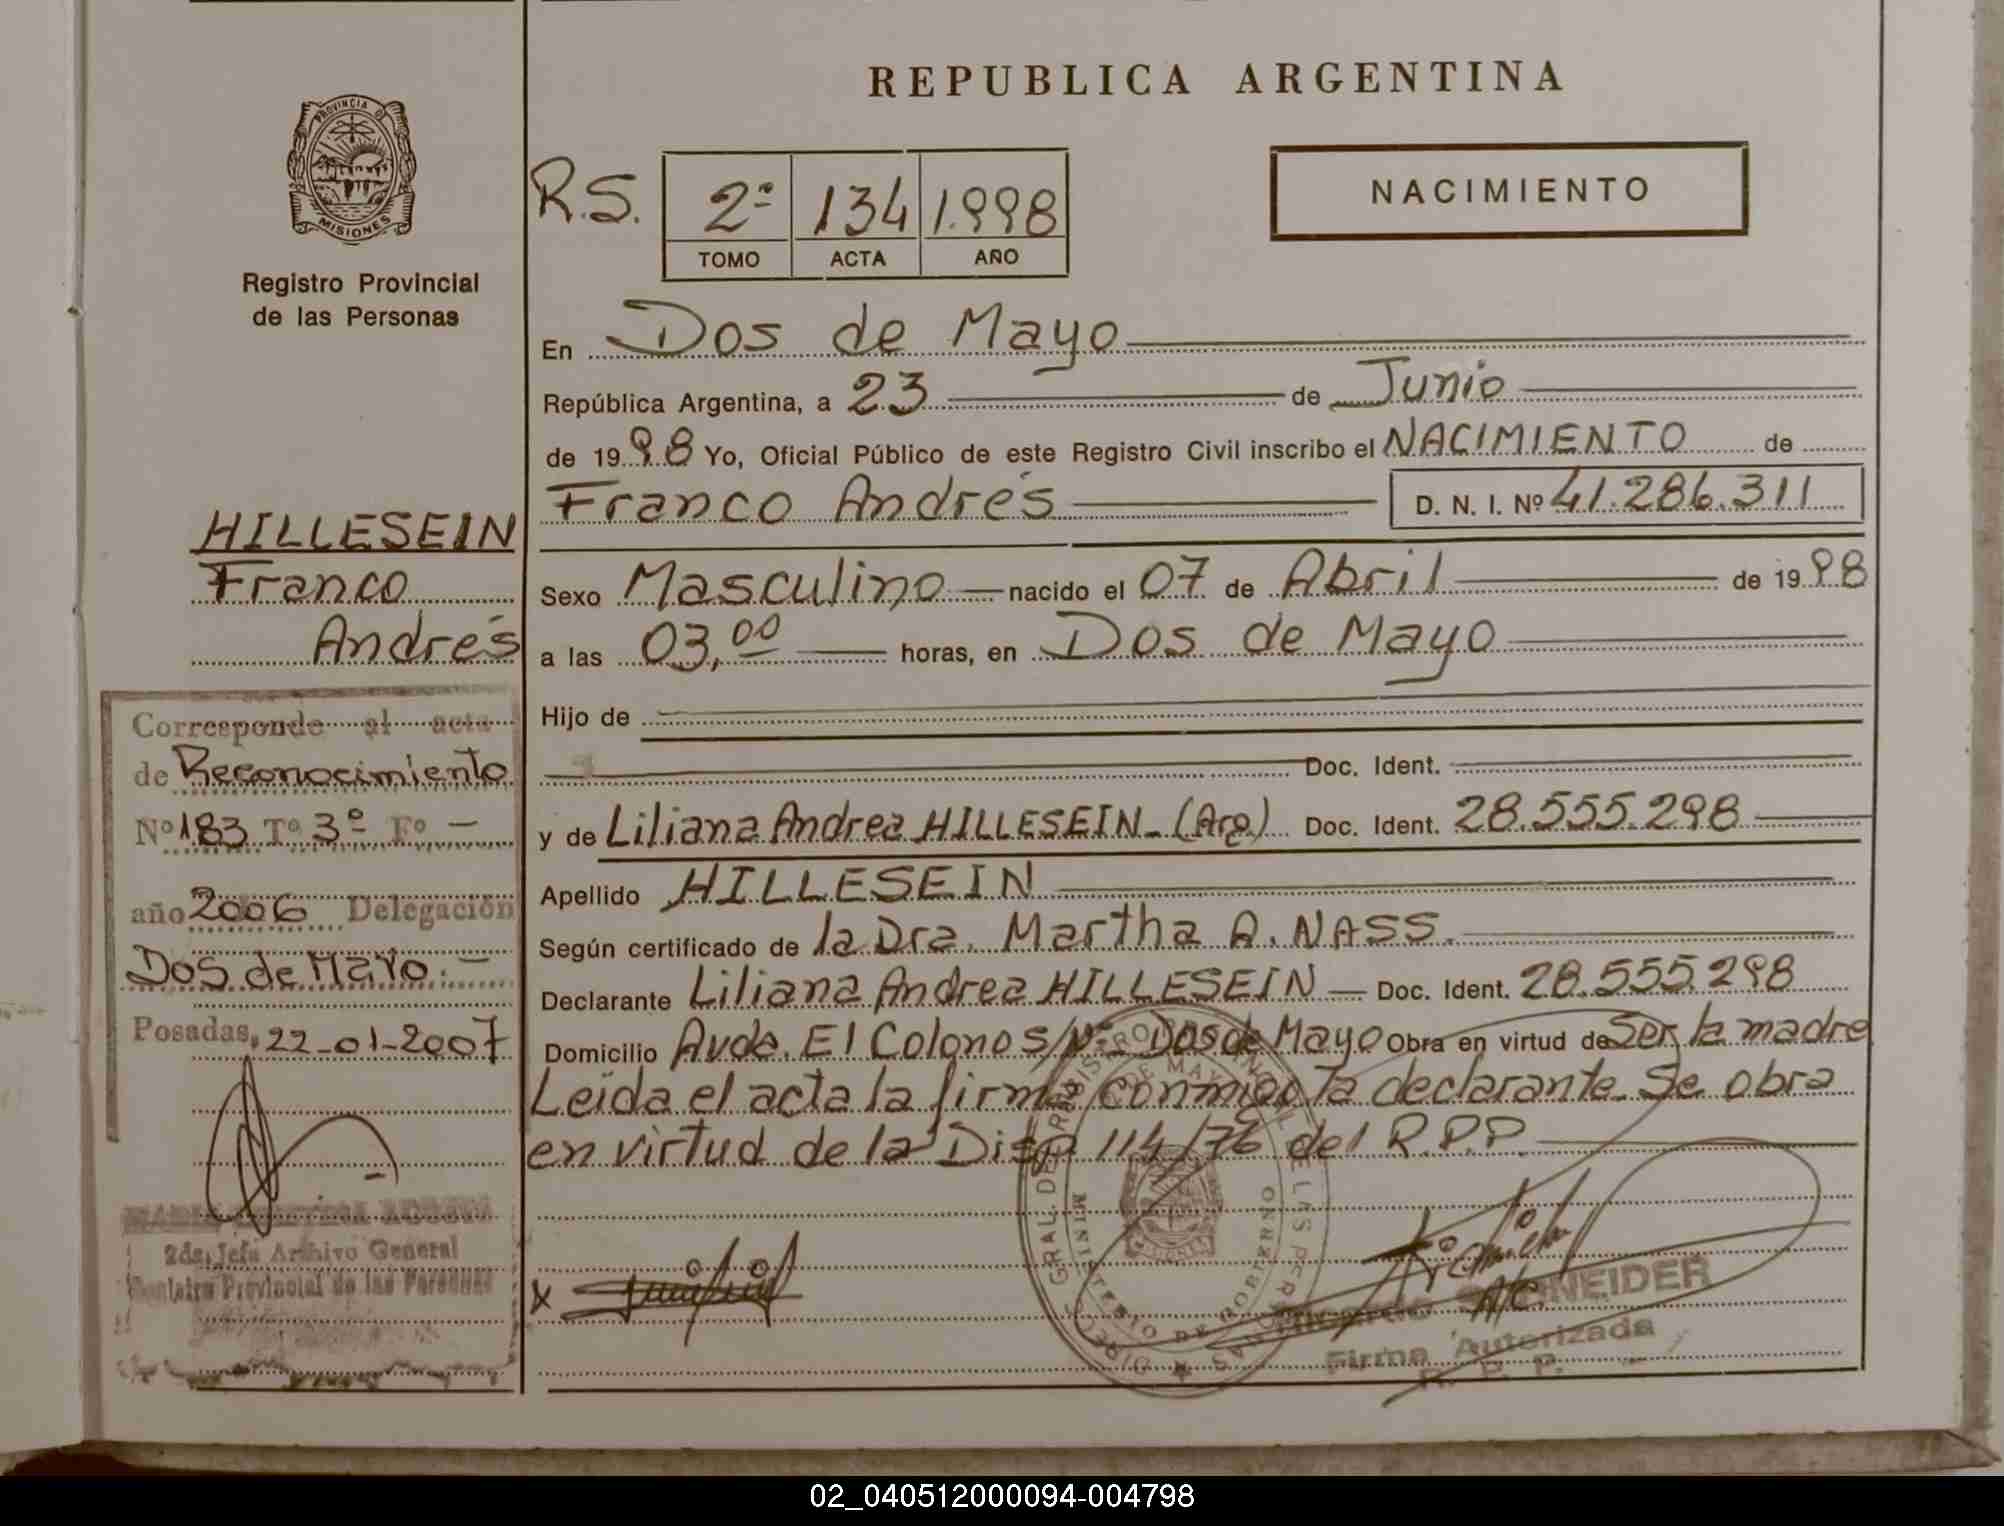 REPUBLICA ARGENTINA
PROVINCIA DE
MISIONES
Registro Provincial
de las Personas
R.S.
2º 134 1.998
TOMO ACTA AÑO
NACIMIENTO
En Dos de Mayo
República Argentina, a 23 de Junio
de 1998 Yo, Oficial Público de este Registro Civil inscribo el NACIMIENTO de
Franco Andrés D. N. I. Nº 41.286.311
Sexo Masculino nacido el 07 de Abril de 1998
a las 03,00 horas, en Dos de Mayo
Hijo de
Doc. Ident.
y de Liliana Andrea HILLESEIN - (Arg) Doc. Ident. 28.555.298
Apellido HILLESEIN
Según certificado de la Dra. Martha A. NASS.
Declarante Liliana Andrea HILLESEIN Doc. Ident. 28.555.298
Domicilio Avda. El Colono s/Nº Dos de Mayo Obra en virtud de Ser la madre
Leída el acta la firma conmigo la declarante. Se obra
en virtud de la Disp. 114/76 del R.P.P.
HILLESEIN
Franco
Andrés
Corresponde al acta
de Reconocimiento
Nº 183 Tº 3º Fº -
año 2006 Delegación
Dos de Mayo. -
Posadas, 22-01-2007
2da. Jefa Archivo General
Provincial de las Personas
X
MINISTERIO DE GOBIERNO
SCHNEIDER
Firma Autorizada
R. P. P.
02_040512000094-004798